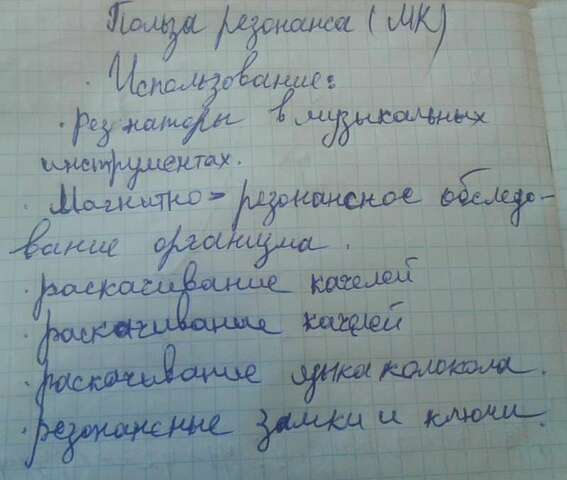 Польза резонанса (МК)
· Использование:
· резонаторы в музыкальных
инструментах.
· Магнитно-резонансное обследо-
вание организма.
· раскачивание качелей
· раскачивание качелей
· раскачивание языка колокола.
· резонансные замки и ключи.